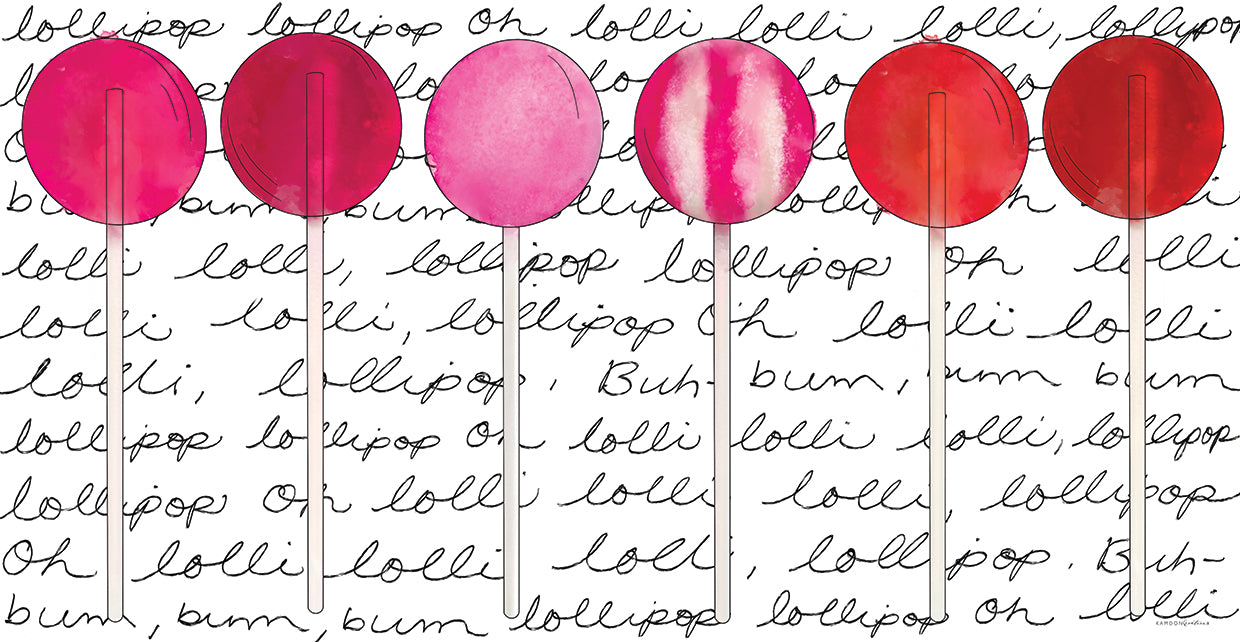 lollipop lollipop Oh lolli lolli lolli, lollipop
bum, bum, bum lollipop lollipop Oh lolli
lolli lolli, lollipop lollipop Oh lolli
lolli lolli, lollipop Oh lolli lolli
lolli, lollipop. Buh-bum, bum bum
lollipop lollipop Oh lolli lolli lolli, lollipop
lollipop Oh lolli lolli, lolli, lollipop
Oh lolli lolli lolli, lollipop. Buh-
bum, bum, bum lollipop lollipop Oh lolli